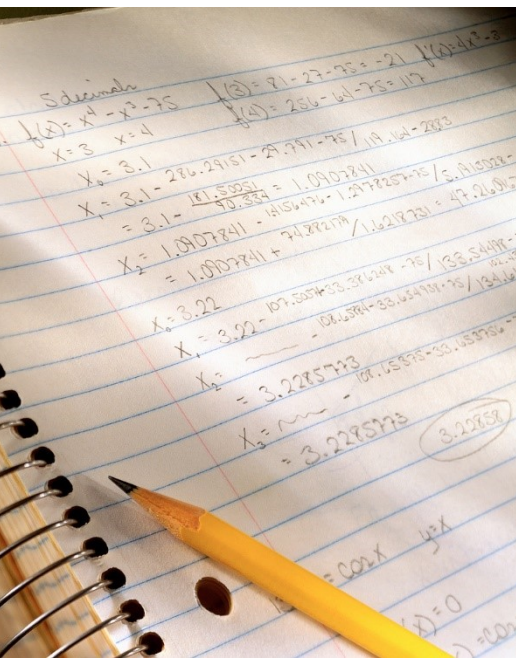 5 decimals
f(x) = x⁴ - x³ - 75 f(3) = 81 - 27 - 75 = -21 f'(x) = 4x³ - 3
x = 3 x = 4 f(4) = 256 - 64 - 75 = 117
X₀ = 3.1
X₁ = 3.1 - 286.29151 - 29.791 - 75 / 119.164 - 2883
= 3.1 - 181.50051 / 90.334 = 1.0907841
X₂ = 1.0907841 - 1.4156476 - 1.2978257 - 75 /
= 1.0907841 + 74.882179 / 1.6218731 =
X₀ = 3.22
X₁ = 3.22 - 107.5054 - 33.386248 - 75 / 133.54498 -
X₂ = - 108.6584 - 33.654958 - 75 /
= 3.2285773
X₃ = - 108.65375 - 33.653756 -
= 3.2285773 3.22858
= cos x y = x
(x) = 0